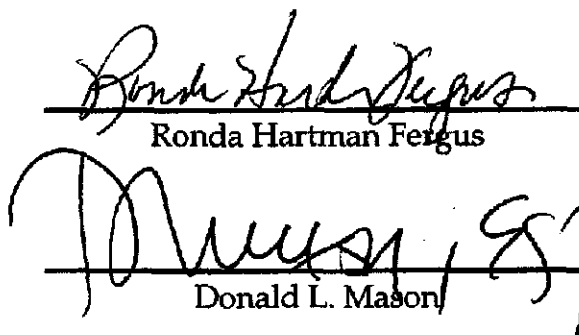 Ronda Hartman Fergus
Ronda Hartman Fergus
Donald L. Mason